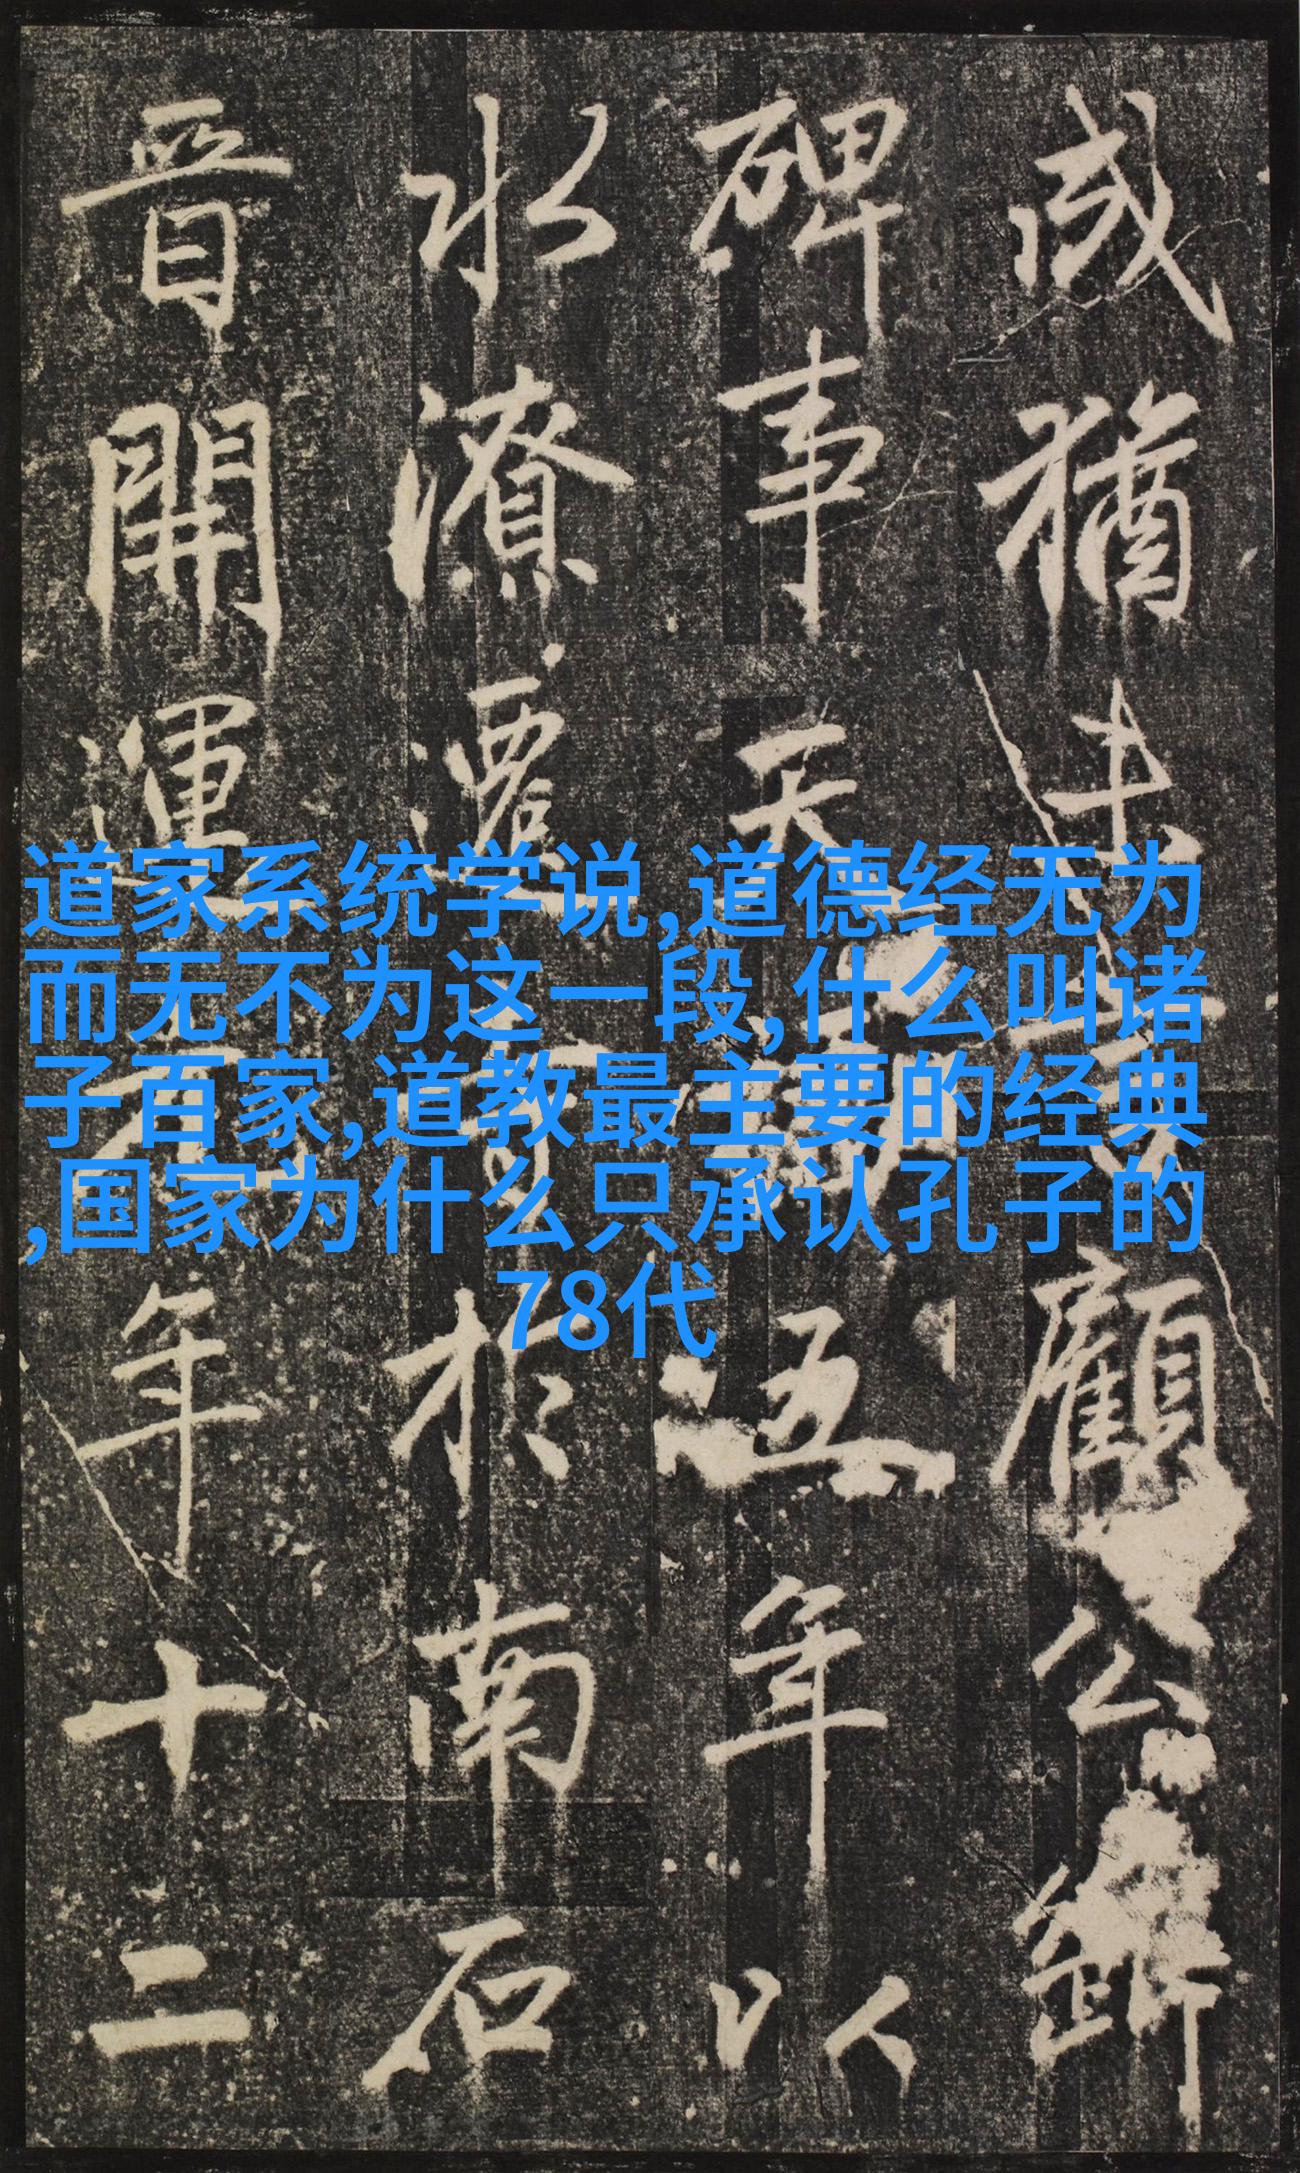 咸猶未立顧公
碑事天五年以
水潦遷於南石
晉開運年十二
道家系统学说,道德经无为
而无不为这一段,什么叫诸
子百家,道教最主要的经典
,国家为什么只承认孔子的
78代